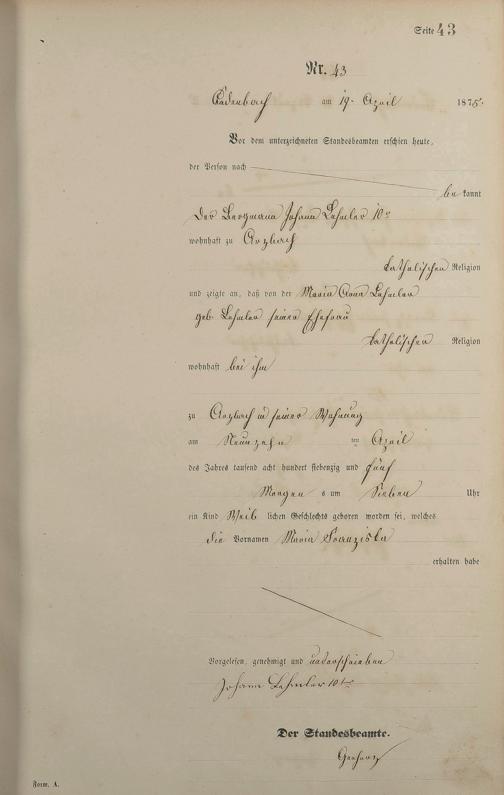 Seite 43
Nr. 43
Kadenbach am 19. April 1875.
Vor dem unterzeichneten Standesbeamten erschien heute,
der Person nach
be kannt
der Bergmann Johann Lehmler 10r
wohnhaft zu Arzbach
katholischen Religion
und zeigte an, daß von der Maria Anna Lehmler
geb. Lehmler seiner Ehefrau
katholischen Religion
wohnhaft bei ihm
zu Arzbach in seiner Wohnung
am Neunzehn ten April
des Jahres tausend acht hundert siebenzig und fünf
Morgen s um Sieben Uhr
ein Kind Weib lichen Geschlechts geboren worden sei, welches
die Vornamen Maria Franziska
erhalten habe
Vorgelesen, genehmigt und unterschrieben
Johann Lehmler 10ter
Der Standesbeamte.
Form. A.